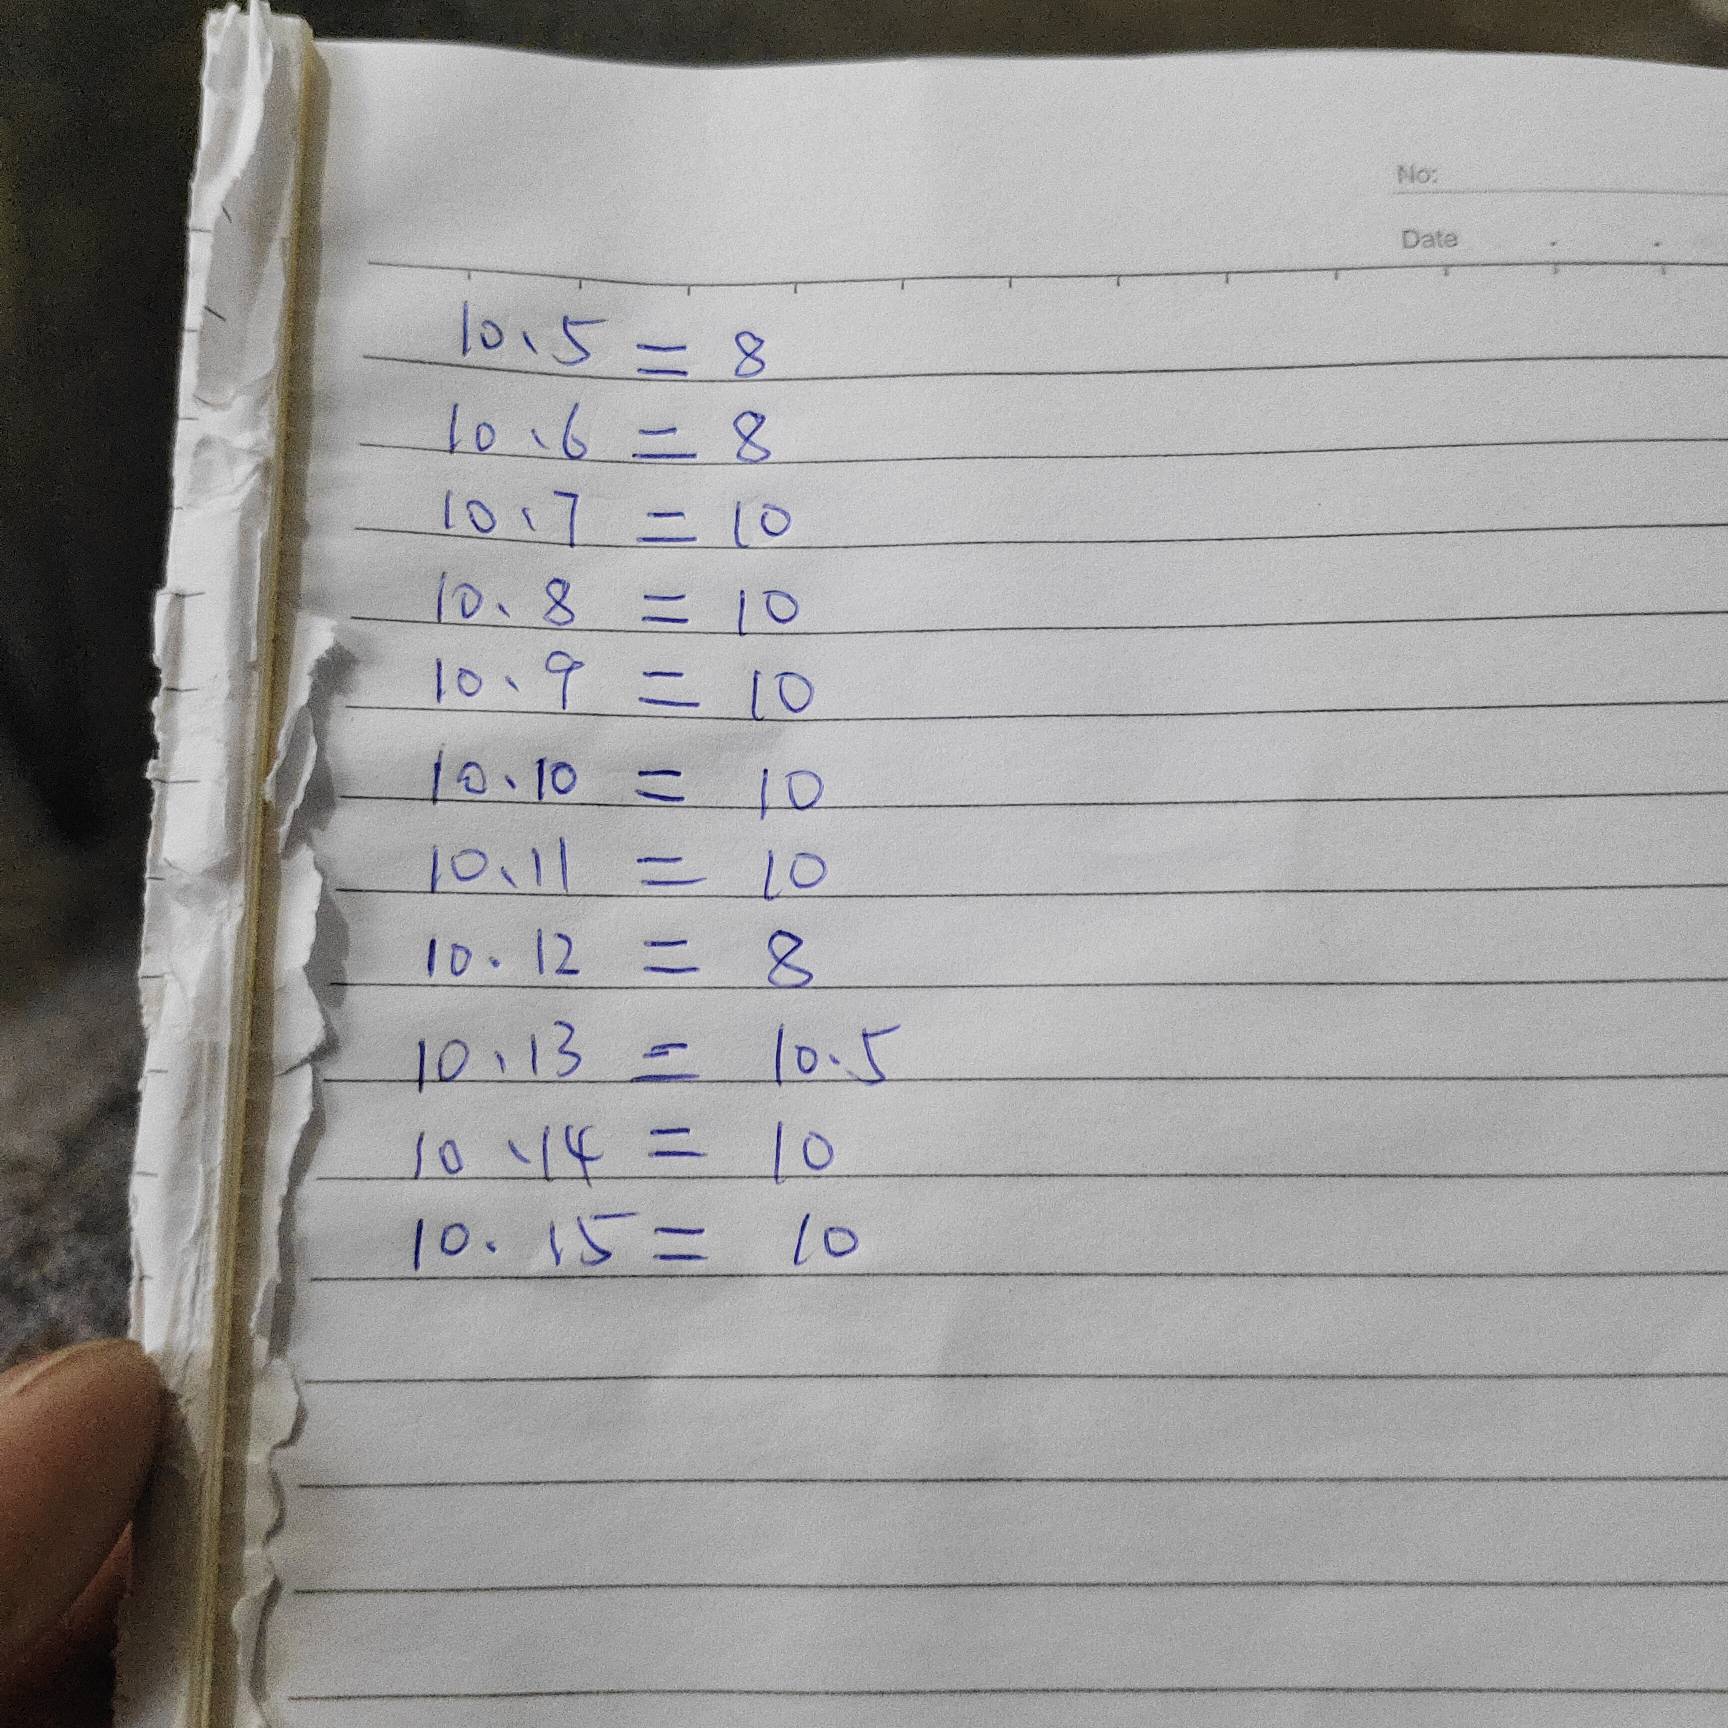 No:
Date . .
10、5 = 8
10、6 = 8
10、7 = 10
10、8 = 10
10、9 = 10
10、10 = 10
10、11 = 10
10. 12 = 8
10、13 = 10.5
10、14 = 10
10. 15 = 10